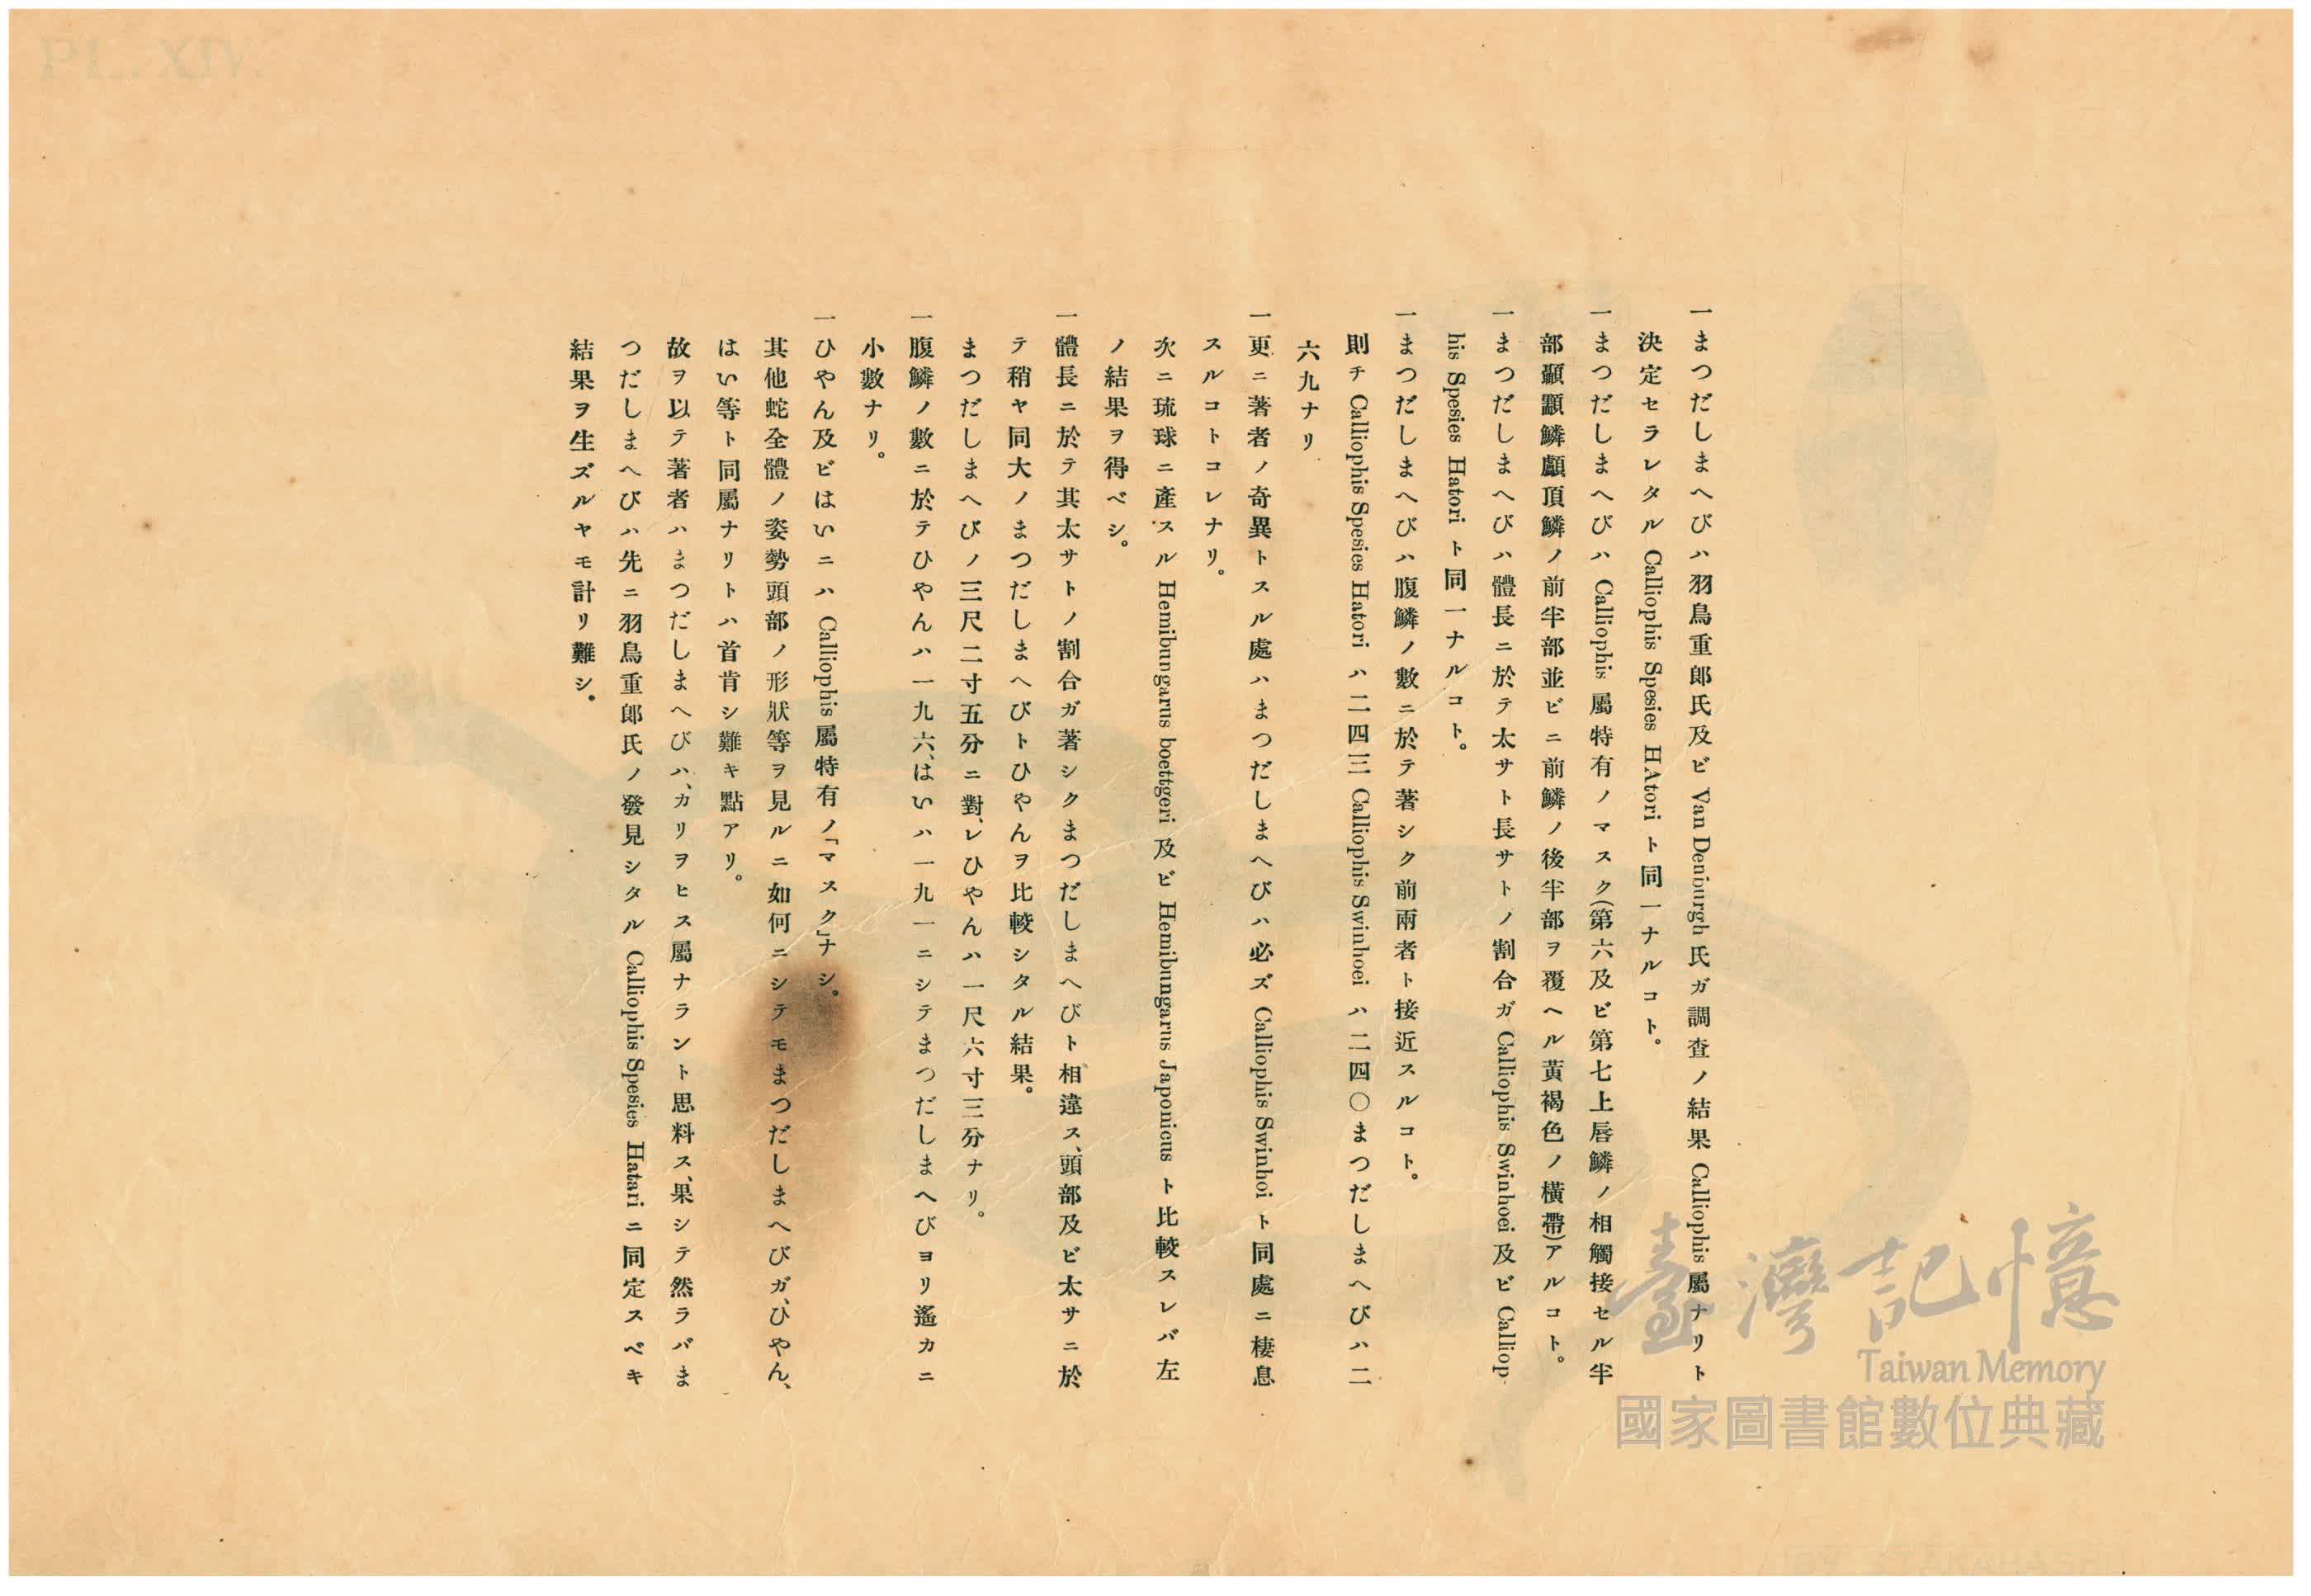 一まつだしまへびハ羽鳥重郎氏及ビ Van Denburgh 氏ガ調査ノ結果 Calliophis 屬ナリト
決定セラレタル Calliophis Spesies HAtori ト同一ナルコト。
一まつだしまへびハ Calliophis 屬特有ノマスク(第六及ビ第七上唇鱗ノ相觸接セル半
部顳顬鱗顱頂鱗ノ前半部並ビニ前鱗ノ後半部ヲ覆ヘル黄褐色ノ橫帶)アルコト。
一まつだしまへびハ體長ニ於テ太サト長サトノ割合ガ Calliophis Swinhoei 及ビ Calliop-
his Spesies Hatori ト同一ナルコト。
一まつだしまへびハ腹鱗ノ數ニ於テ著シク前兩者ト接近スルコト。
則チ Calliophis Spesies Hatori ハ二四三 Calliophis Swinhoei ハ二四〇まつだしまへびハ二
六九ナリ
一更ニ著者ノ奇異トスル處ハまつだしまへびハ必ズ Calliophis Swinhoi ト同處ニ棲息
スルコトコレナリ。
次ニ琉球ニ產スル Hemibungarus boettgeri 及ビ Hemibungarus Japonicus ト比較スレバ左
ノ結果ヲ得ベシ。
一體長ニ於テ其太サトノ割合ガ著シクまつだしまへびト相違ス、頭部及ビ太サニ於
テ稍ヤ同大ノまつだしまへびトひやんヲ比較シタル結果。
まつだしまへびノ三尺二寸五分ニ對、レひやんハ一尺六寸三分ナリ。
一腹鱗ノ數ニ於テひやんハ一九六、はいハ一九一ニシテまつだしまへびヨリ遙カニ
小數ナリ。
一ひやん及ビはいニハ Calliophis 屬特有ノ「マスク」ナシ。
其他蛇全體ノ姿勢頭部ノ形狀等ヲ見ルニ如何ニシテモまつだしまへびガ、ひやん、
はい等ト同屬ナリトハ首肯シ難キ點アリ。
故ヲ以テ著者ハまつだしまへびハ、カリヲヒス屬ナラント思料ス、果シテ然ラバま
つだしまへびハ先ニ羽鳥重郎氏ノ發見シタル Calliophis Spesies Hatari ニ同定スベキ
結果ヲ生ズルヤモ計リ難シ。
PL. XIV.
臺灣記憶
Taiwan Memory
國家圖書館數位典藏